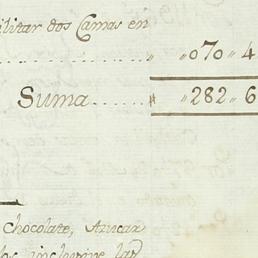 ilitar dos Camas en
" "070" 4
Suma...... " "282" 6
Chocolate, Azucar
los inclusive las